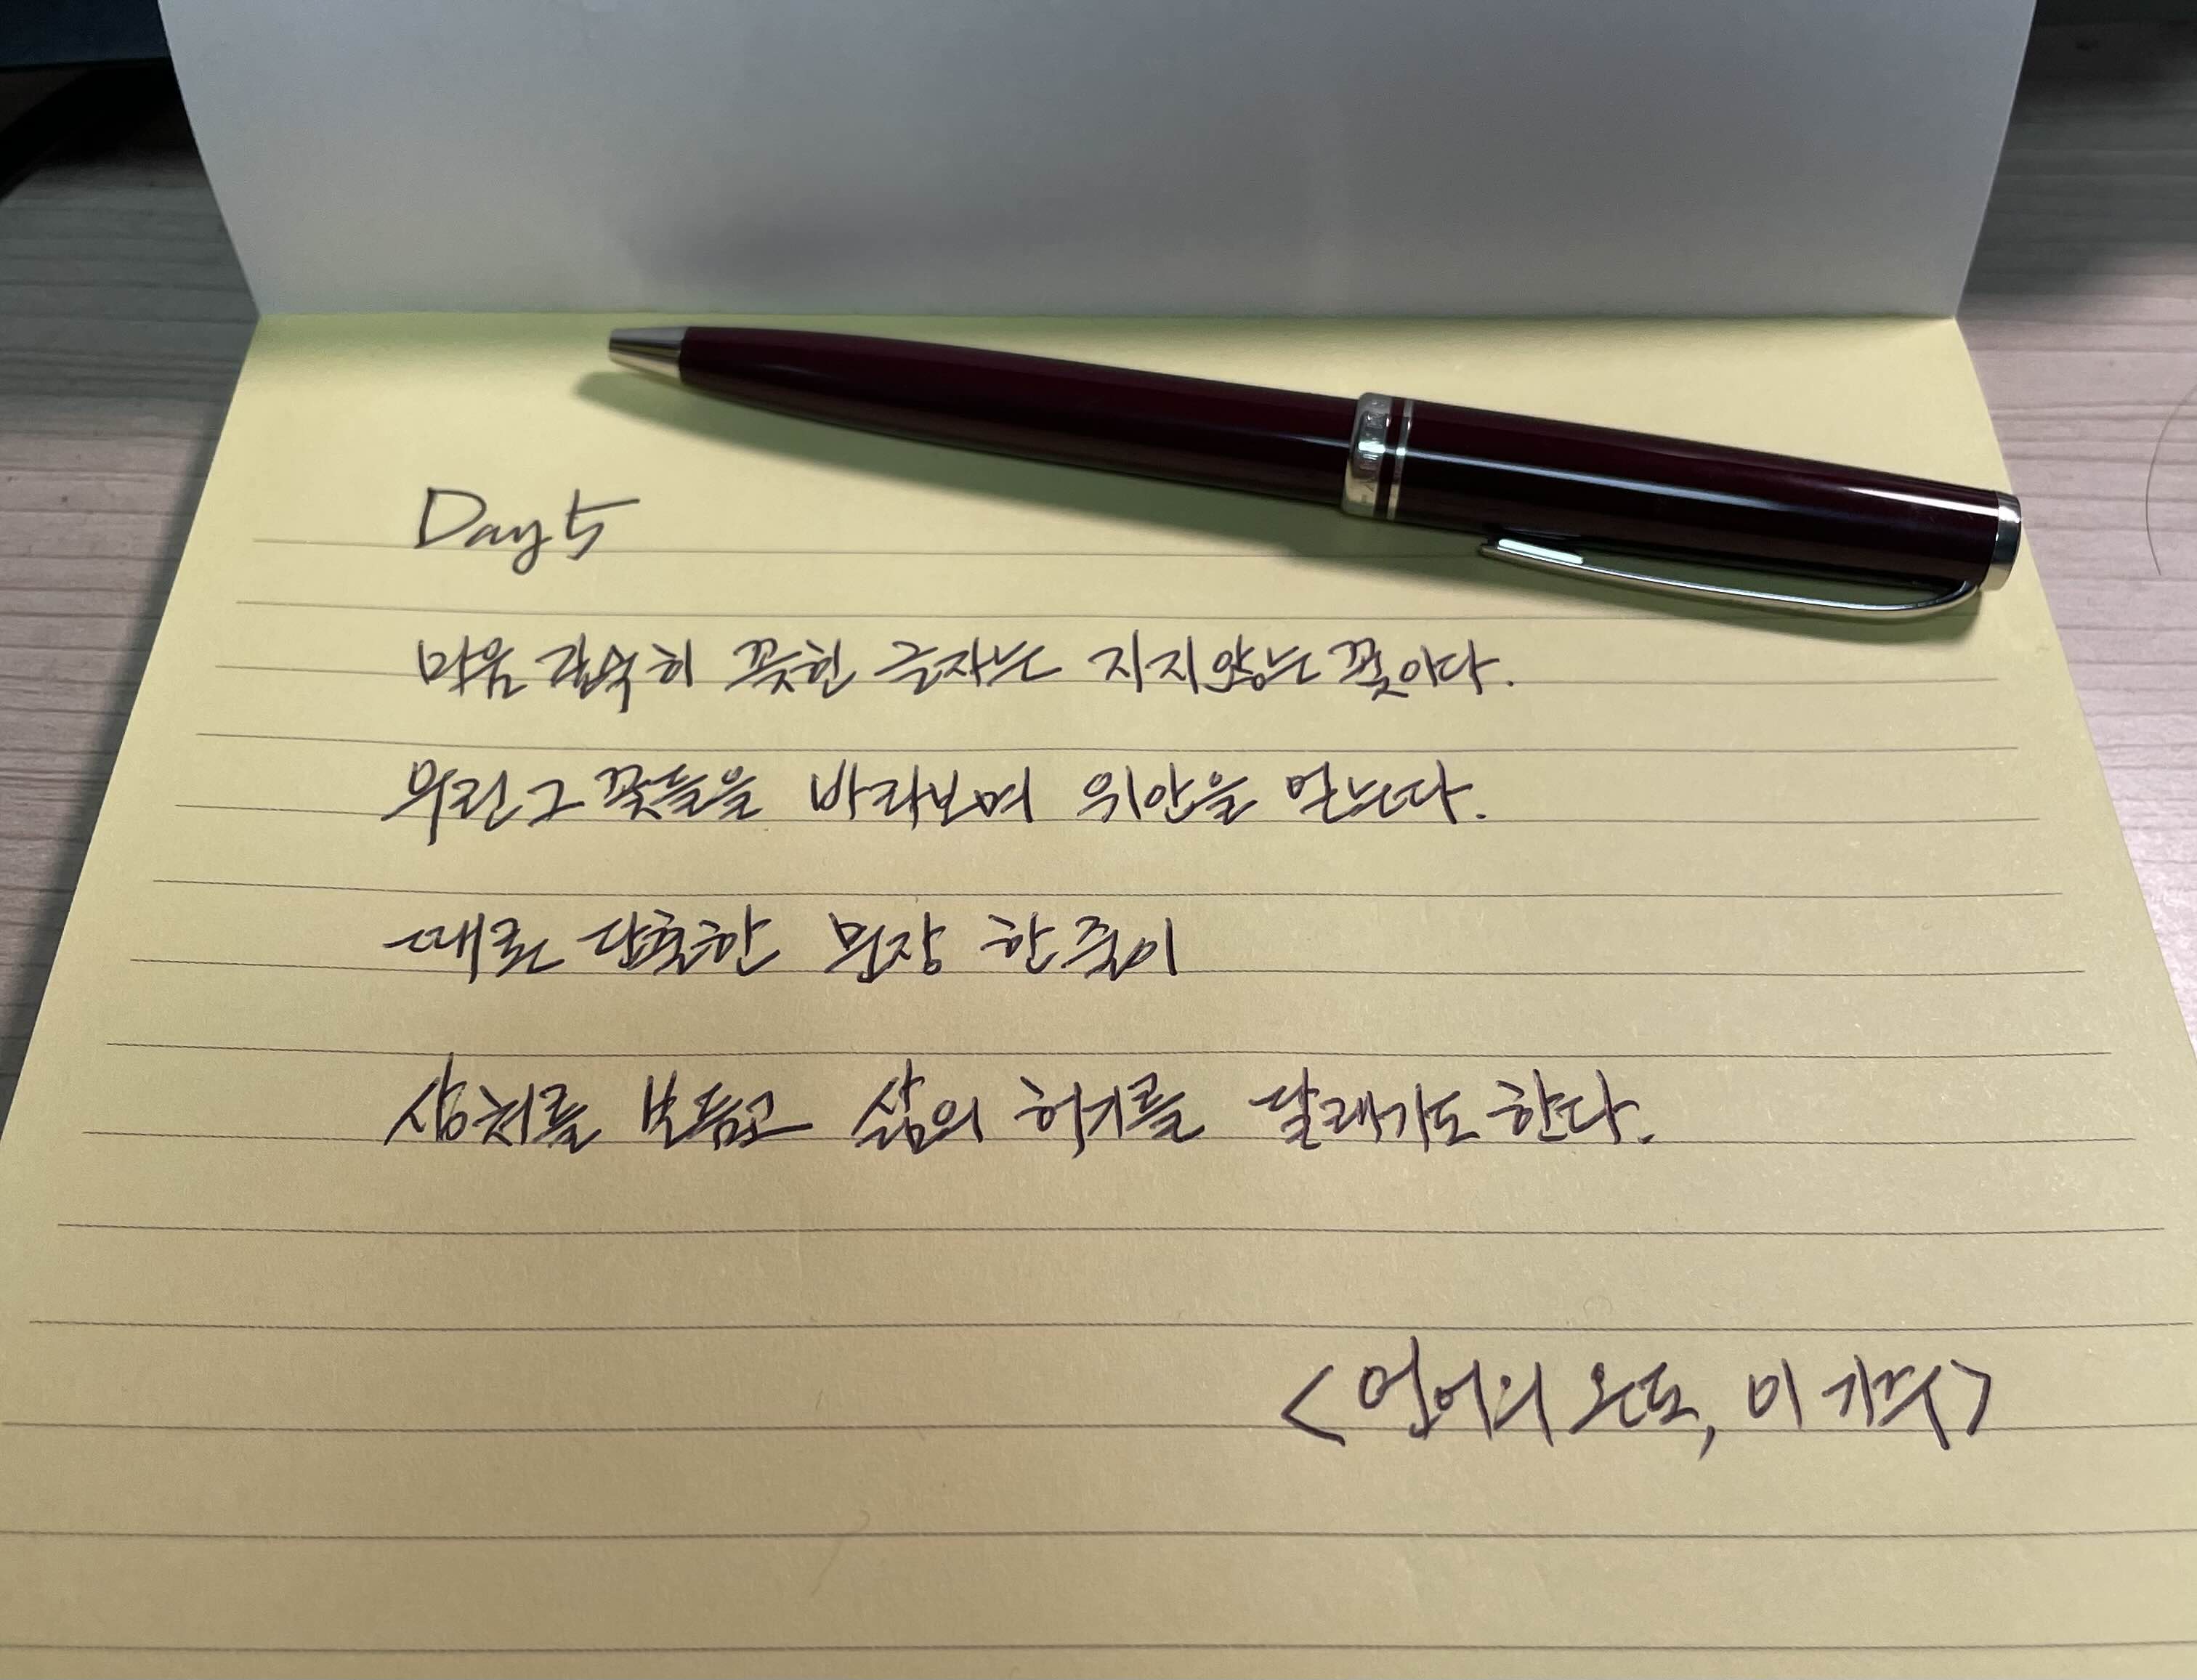 Day 5
마음 깊숙히 꽂힌 글자는 지지않는 꽃이다.
우린 그 꽃들을 바라보며 위안을 얻는다.
때로 단출한 문장 한 줄이
상처를 보듬고 삶의 허기를 달래기도 한다.
<언어의 온도, 이기주>